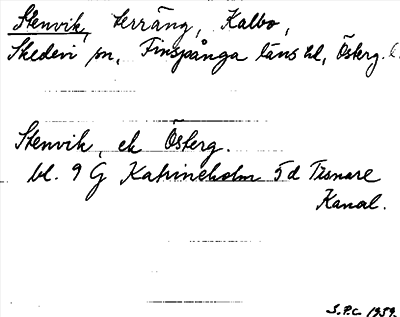 Stenvik, terräng, Kalbo,
Skedevi sn, Finspånga läns hd, Österg. l.
Stenvik, ek Österg.
bl. 9 G Katrineholm 5d Tisnare
Kanal.
S.P.C 1959.